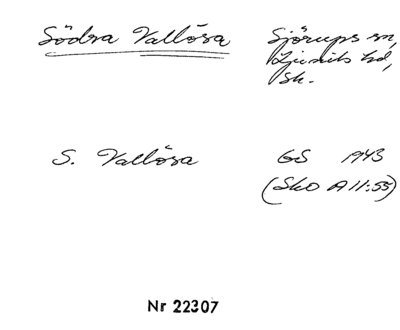 Södra Vallösa Sjörups sn,
Ljunits hd,
Sk.
S. Vallösa GS 1943
(SkO A11:55)
Nr 22307